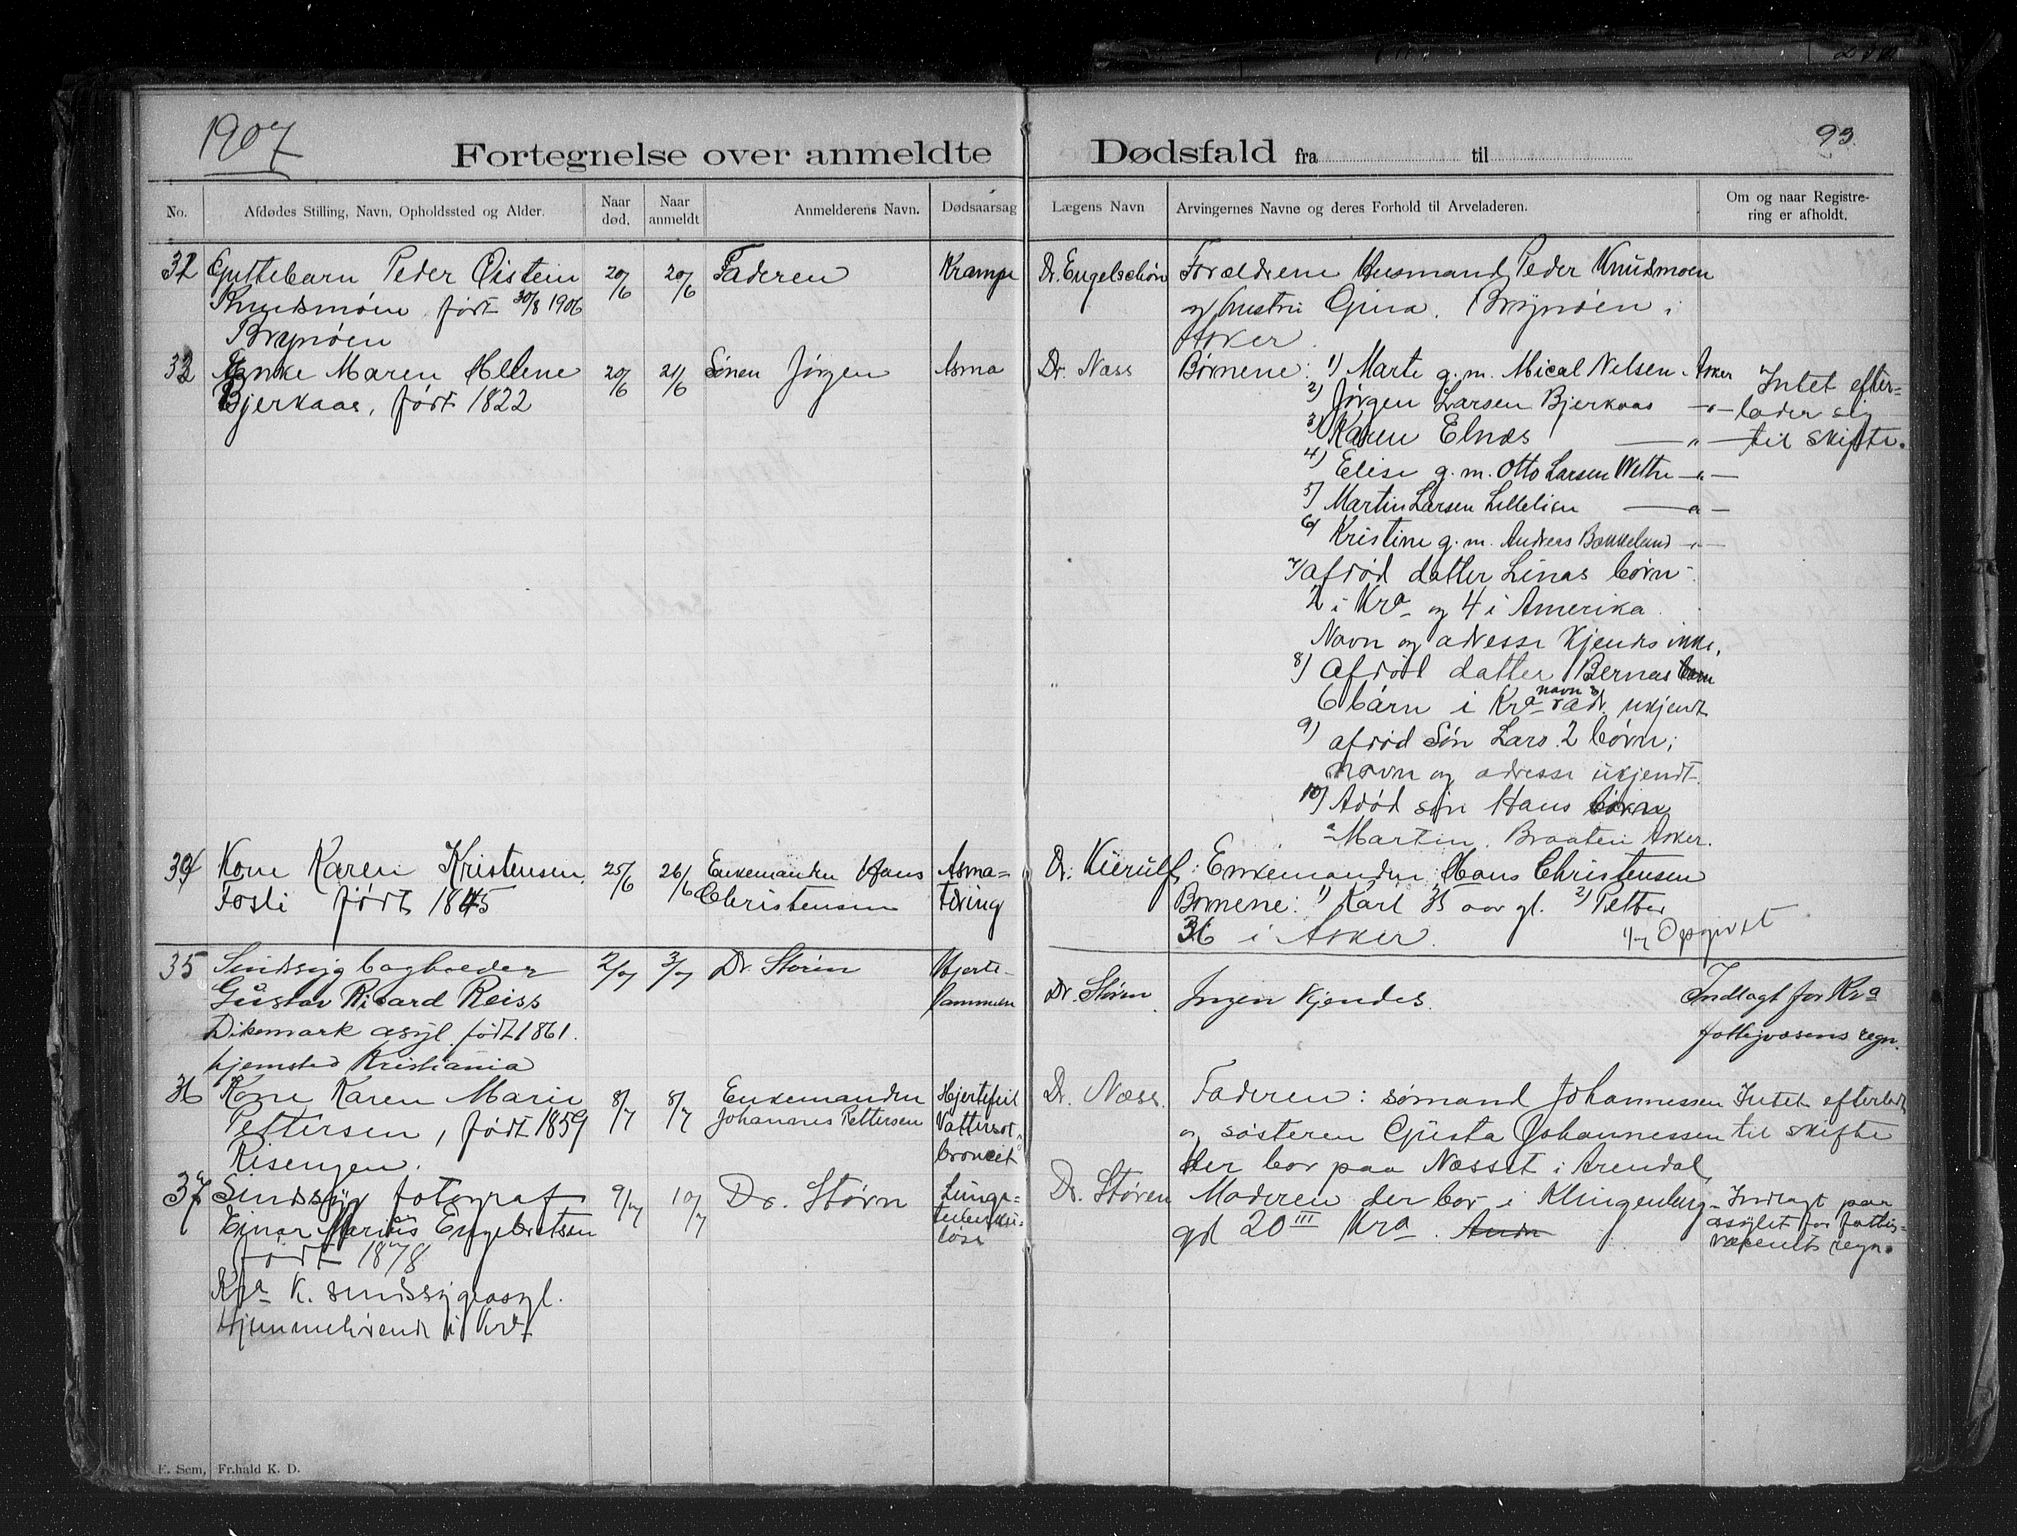 1907
93.
Fortegnelse over anmeldte Dødsfald fra til
No.
Afdødes Stilling, Navn, Opholdssted og Alder.
Naar død.
Naar anmeldt
Anmelderens Navn.
Dødsaarsag
Lægens Navn
Arvingernes Navne og deres Forhold til Arveladeren.
Om og naar Registre-
ring er afholdt.
32 Guttebarn Peder Øistein 20/6 20/6 Faderen Krampe Dr. Engelschiøn Forældrene Husmand Peder Knudsmoen
Knudsmoen født 30/8 1906 og hustru Gina. Brynøen i
Brynøen Asker.
33 Enke Maren Helene 20/6 21/6 Sønen Jørgen Asma Dr. Næss Børnene: 1) Marte g. m. Mical Nilsen Asker Intet efter-
Bjerkaas, født 1822 2) Jørgen Larsen Bjerkaas —"— lader sig
3) Karen Elnæs —"— til skifte.
4) Elise g. m. Otto Larsen Wethe —"—
5) Martin Larsen Lillelien —"—
6) Kristine g. m. Anders Bakkeland —"—
7) afdød datter Linas børn
2 i Kra og 4 i Amerika.
Navn og adresse kjendes ikke.
8) afdød datter Bernas barn
6 børn i Kra navn & adr. ukjendt
9) afdød Søn Lars 2 børn;
navn og adresse ukjendt.
10) Adød søn Hans børn
a Martin. Braaten Asker.
34 Kone Karen Kristensen 25/6 26/6 Enkemanden Hans Asma- Dr. Kierulf: Enkemanden Hans Christensen
Fosli født 1845 Christensen tæring Børnene: 1) Karl 35 aar gl. 2) Petter
36 i Asker. 1/7 Opgivet
35 Sindssyg bagholder 2/7 3/7 Dr. Støren Hjerte- Dr. Støren. Ingen kjendes. Indlagt for Kra
Gustav Ricard Reiss lammelse fattigvæsens regn.
Dikemark asyl. født 1861.
hjemsted Kristiania
36 Kone Karen Marie 8/7 8/7 Enkemanden Hjertefeil Dr. Næss. Faderen: sømand Johannessen Intet efterladt
Pettersen, født 1859 Johannes Pettersen Vattersot og søsteren Gusta Johannessen til skifte
Risengen. broncit der bor paa Næsset i Arendal
37 Sindssyg fotograf 9/7 10/7 Dr. Størn Lunge- Dr. Støren Moderen der bor i Klingenberg- Indlagt paa
Einar Marius Engebretsen tuberku- gd 20 III Kra. asylet for fattig-
født 1878 løse væsenets regn.
Kra K. sindssygeasyl.
Hjemmehørende i Kra
E. Sem, Fr.hald K. D.